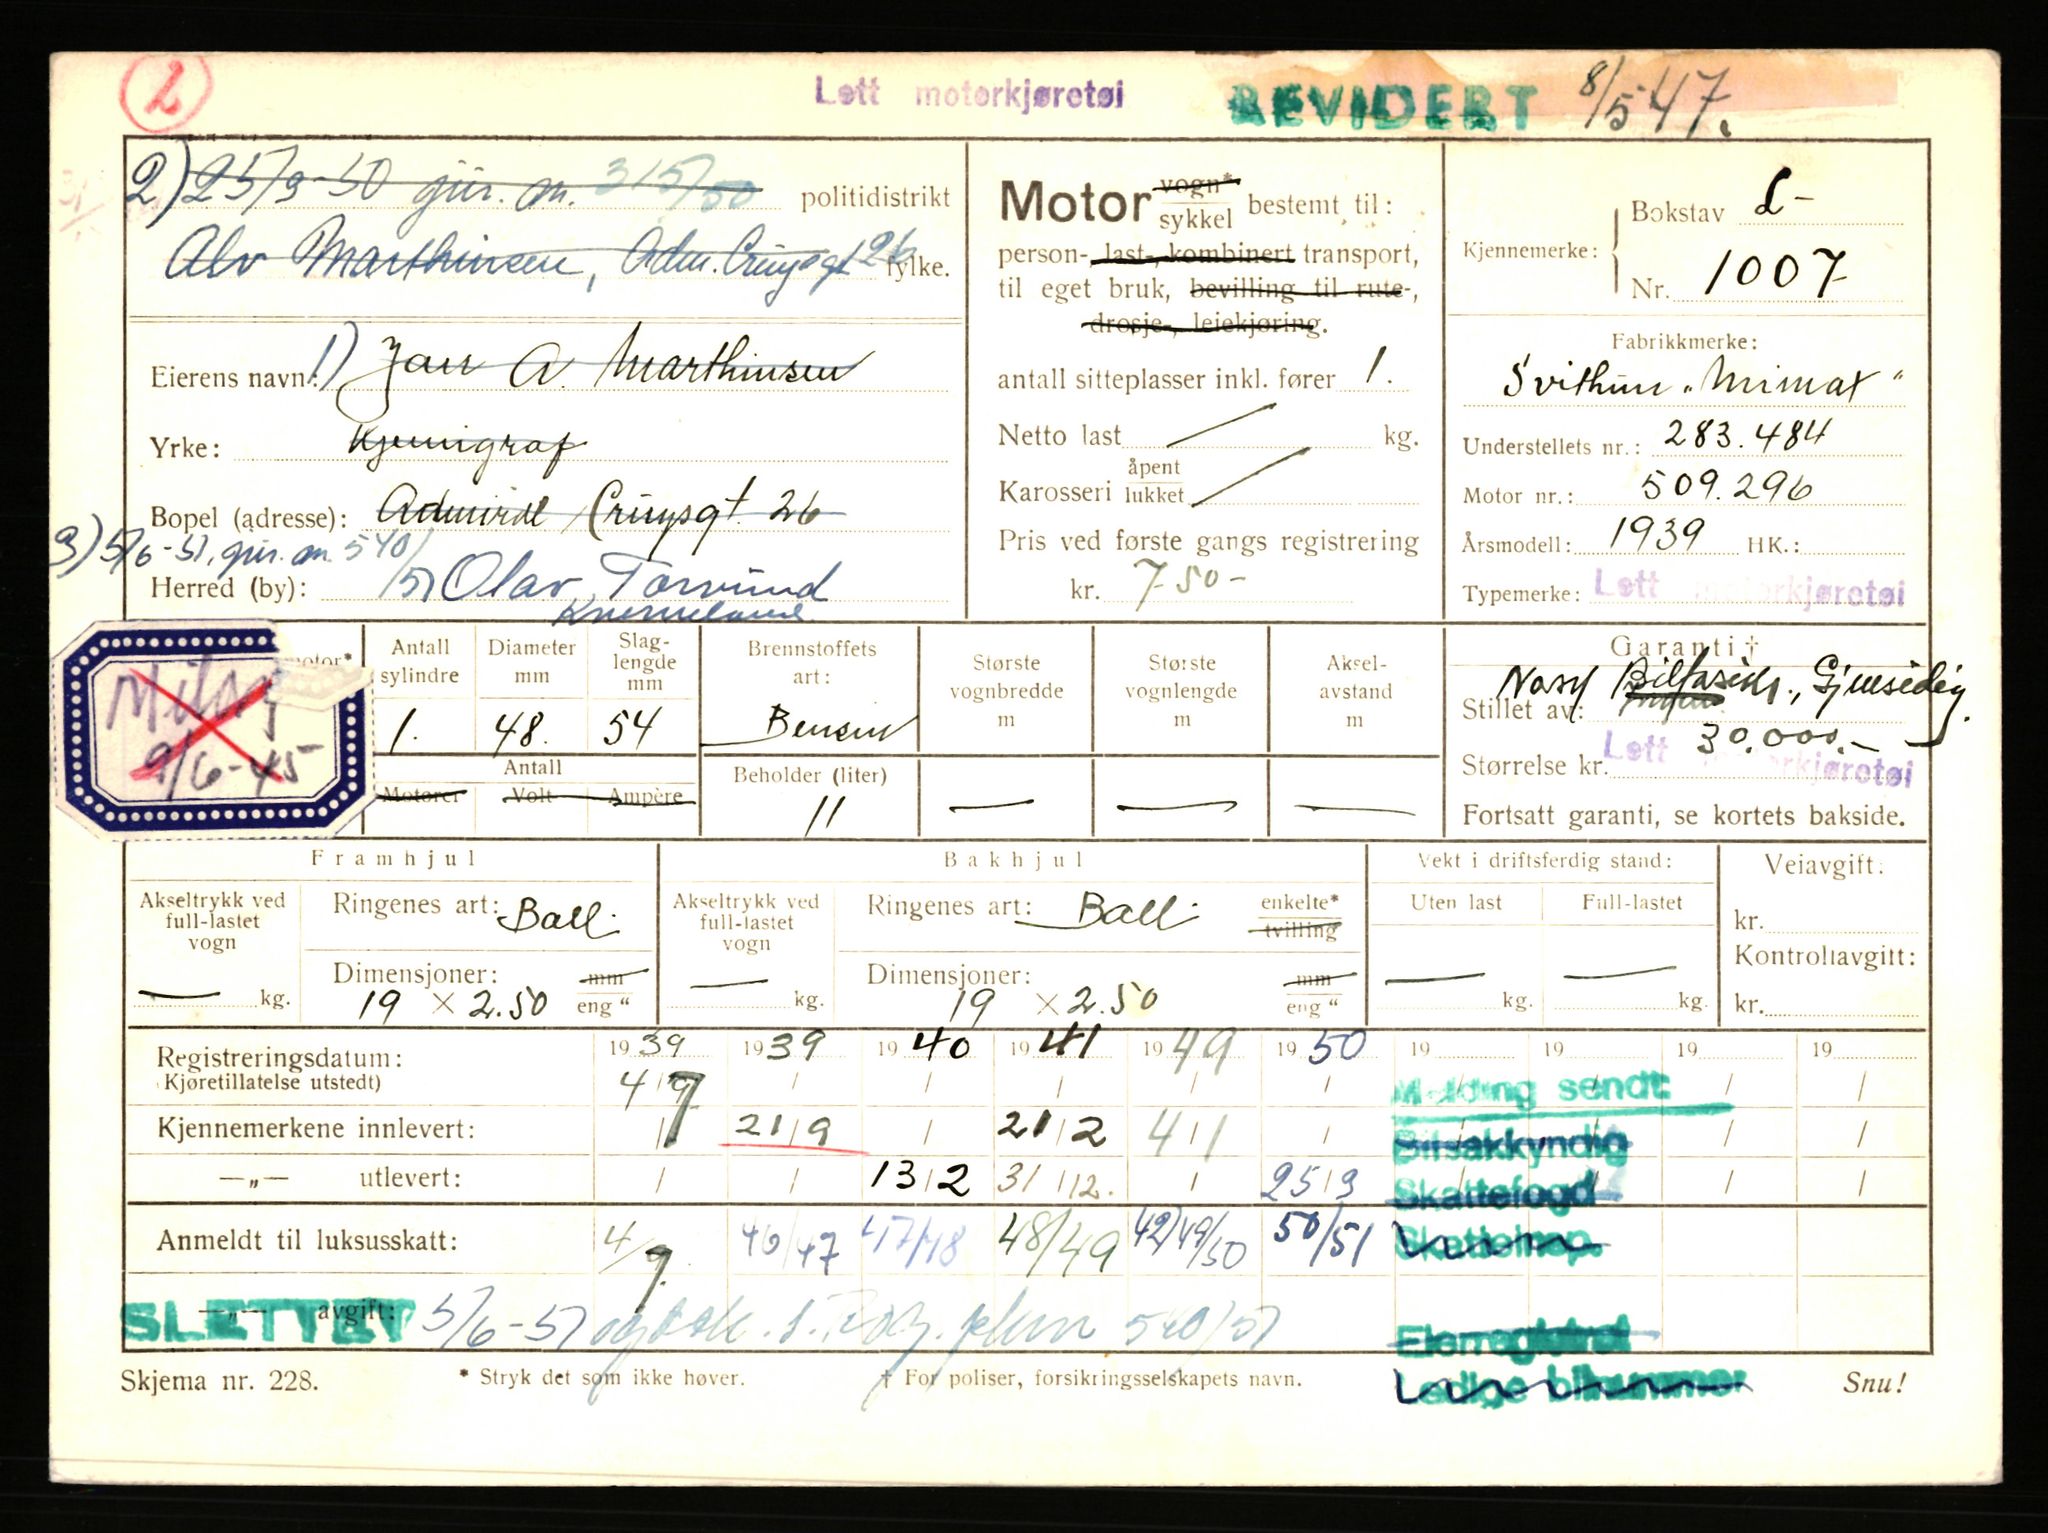 2
Lett motorkjøretøi
REVIDERT 8/5 47.
2) 25/3-50 jnr. an. 315/50 politidistrikt
Alv Marthinsen, Adm. Cruysgt 26 fylke.
Eierens navn: 1) A. Marthinsen
Yrke: Kjemigraf
Bopel (adresse): Admiral Cruysgt. 26
3) 5/6-51, jnr. an. 540/51 Olav
Herred (by):
Motor vogn* sykkel bestemt til:
person-, last-, kombinert transport,
til eget bruk, bevilling til rute-,
drosje-, leiekjøring.
antall sitteplasser inkl. fører 1.
Netto last kg.
Karosseri åpent lukket
Pris ved første gangs registrering
kr. 750-
Kjennemerke:
Bokstav L-
Nr. 1007
Fabrikkmerke:
Svithun „Mimat"
Understellets nr.: 283.484
Motor nr.: 509.296
Årsmodell: 1939 HK.:
Typemerke: Lett motorkjøretøi
motor*
9/6-45
Antall sylindre
1.
Diameter mm
48.
Slag-lengde mm
54
Antall
Motorer Volt Ampère
Brennstoffets art:
Bensin
Beholder (liter)
11
Største vognbredde m
Største vognlengde m
Aksel-avstand m
Garanti †
Stillet av: Gjensidig.
Størrelse kr. 30.000.- Lett motorkjøretøi
Fortsatt garanti, se kortets bakside.
Framhjul
Akseltrykk ved full-lastet vogn
kg.
Ringenes art: Ball.
Dimensjoner: mm
19 × 2.50 eng "
Bakhjul
Akseltrykk ved full-lastet vogn
kg.
Ringenes art: Ball. enkelte* tvilling
Dimensjoner: mm
19 × 2.50 eng "
Vekt i driftsferdig stand:
Uten last Full-lastet
kg. kg.
Veiavgift:
kr.
Kontrollavgift:
kr.
Registreringsdatum: 1939 1939 1940 1941 1949 1950 19 19 19 19
(Kjøretillatelse utstedt) 4/9
Kjennemerkene innlevert: 21/9 21/2 4/1
—„— utlevert: 13/2 31/12. 25/3
Anmeldt til luksusskatt: 4/9 46/47 47/48 48/49 42/49/50 50/51
—„— avgift:
SLETTET 5/6-51 540/51
Melding sendt:
Bilsakkyndig
Skattefogd
Skatteinsp.
Eierregistret
Ledige bilnummer
Skjema nr. 228.
* Stryk det som ikke høver.
† For poliser, forsikringsselskapets navn.
Snu!